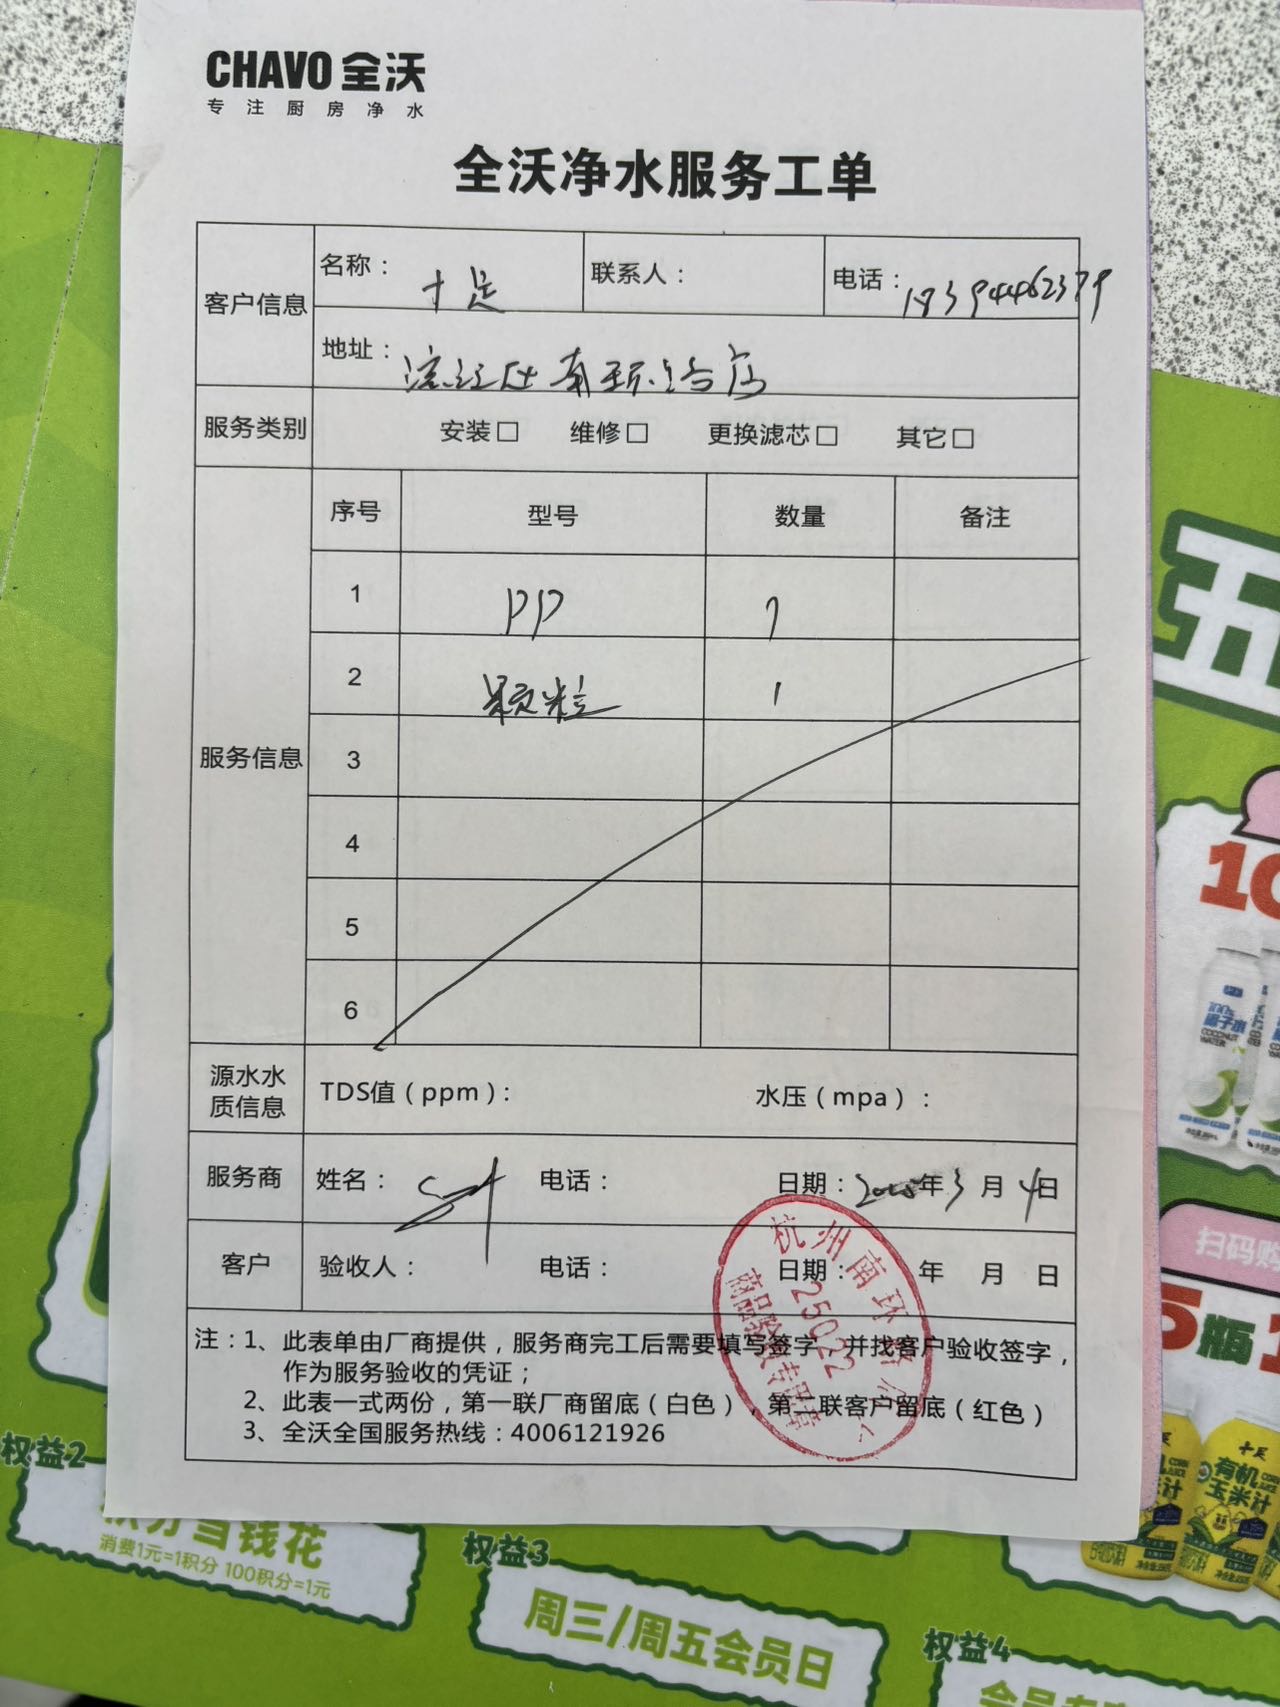 CHAVO 全沃
专注厨房净水
全沃净水服务工单
客户信息
名称： 十足
联系人：
电话：
地址：
服务类别 安装□ 维修□ 更换滤芯□ 其它□
服务信息
序号 型号 数量 备注
1 PP 1
2 颗粒 1
3
4
5
6
源水水质信息 TDS值（ppm）： 水压（mpa）：
服务商 姓名： 电话： 日期： 年3月4日
客户 验收人： 电话： 日期： 年 月 日
注：1、此表单由厂商提供，服务商完工后需要填写签字，并找客户验收签字，
作为服务验收的凭证；
2、此表一式两份，第一联厂商留底（白色），第二联客户留底（红色）
3、全沃全国服务热线：4006121926
杭州南环路
25022
商品验收专用章
五
10
100%椰子水
COCONUT WATER
扫码购
5瓶1
十足
有机玉米汁
权益2
积分当钱花
消费1元=1积分 100积分=1元
权益3
周三/周五会员日
权益4